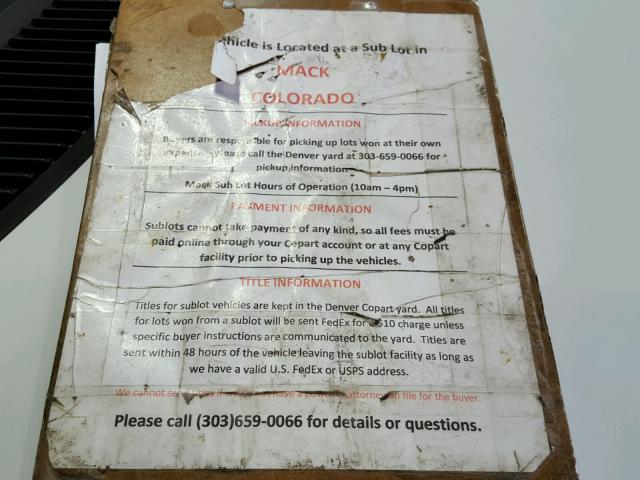 hicle is Located at a Sub Lot in
MACK
COLORADO
PICKUP INFORMATION
Buyers are responsible for picking up lots won at their own
expense please call the Denver yard at 303-659-0066 for
pickup information
Mack Sub Lot Hours of Operation (10am – 4pm)
PAYMENT INFORMATION
Sublots cannot take payment of any kind, so all fees must be
paid online through your Copart account or at any Copart
facility prior to picking up the vehicles.
TITLE INFORMATION
Titles for sublot vehicles are kept in the Denver Copart yard. All titles
for lots won from a sublot will be sent FedEx for a $10 charge unless
specific buyer instructions are communicated to the yard. Titles are
sent within 48 hours of the vehicle leaving the sublot facility as long as
we have a valid U.S. FedEx or USPS address.
We cannot send titles if we do not have a power of attorney on file for the buyer.
Please call (303)659-0066 for details or questions.